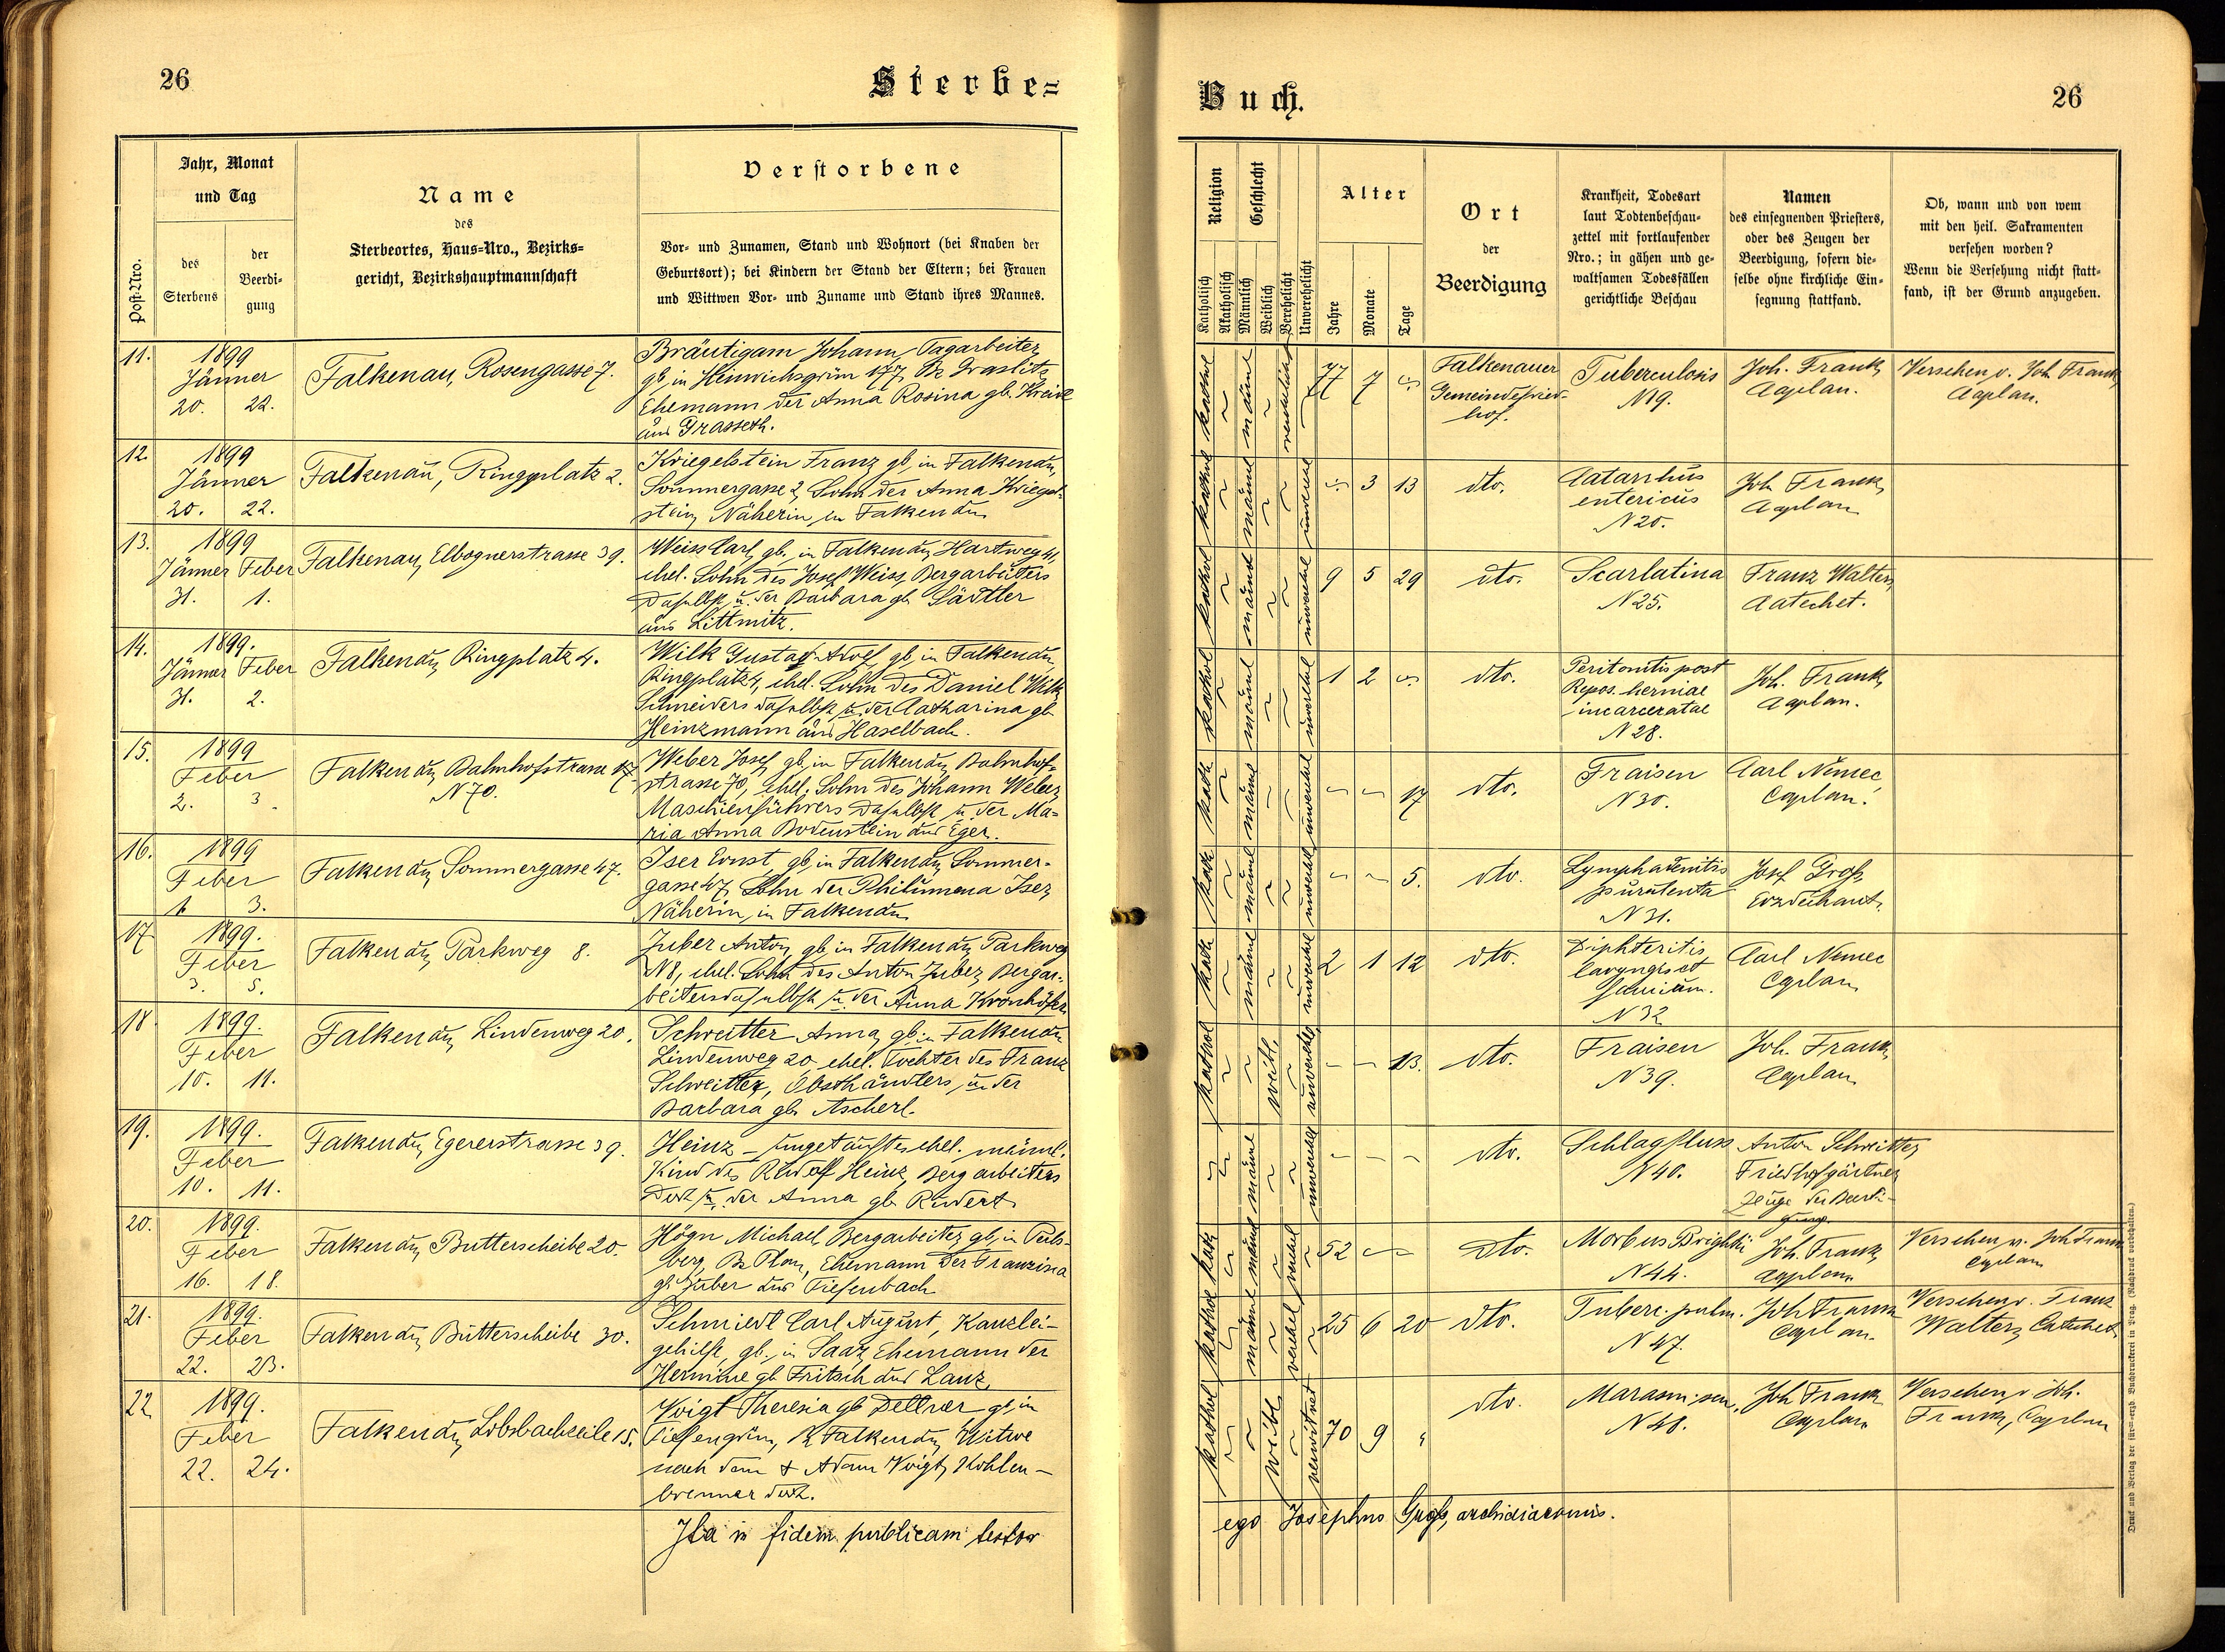 26
Sterbe=
Jahr, Monat
und Tag
Post-Nro.
des
Sterbens
der
Beerdi-
gung
Name
des
Sterbeortes, Haus-Nro., Bezirks-
gericht, Bezirkshauptmannschaft
Verstorbene
Vor- und Zunamen, Stand und Wohnort (bei Knaben der
Geburtsort); bei Kindern der Stand der Eltern; bei Frauen
und Wittwen Vor- und Zuname und Stand ihres Mannes.
11.
1899
Jänner
20. 22.
Falkenau, Rosengasse 7.
Bräutigam Johann, Tagarbeiter,
gb. in Heinrichsgrün 177, Bz Graslitz,
Ehemann der Anna Rosina gb.
aus Grasseth.
12.
1899
Jänner
20. 22.
Falkenau, Ringplatz 2.
Kriegelstein Franz gb. in Falkenau,
Sommergasse 2, Sohn der Anna Kriegel-
stein, Näherin in Falkenau
13.
1899
Jänner Feber
31. 1.
Falkenau, Elbognerstrasse 39.
Weiss Carl, gb. in Falkenau, Hartweg 41,
ehel. Sohn des Josef Weiss, Bergarbeiters
daselbst u. der Barbara gb. Sädtler
aus Littmitz.
14.
1899.
Jänner Feber
31. 2.
Falkenau, Ringplatz 4.
Wilk Gustav Adolf, gb. in Falkenau,
Ringplatz 4, ehel. Sohn des Daniel Wilk,
Schneiders daselbst u. der Catharina gb.
Heinzmann aus Haselbach.
15.
1899
Feber
2. 3.
Falkenau, Bahnhofstrasse
N 70.
Weber Josef, gb. in Falkenau, Bahnhof-
strasse 70, ehel. Sohn des Johann Weber,
Maschienführers daselbst u. der Ma-
ria Anna Bodenstein aus Eger.
16.
1899
Feber
3.
Falkenau, Sommergasse 47.
Iser Ernst, gb. in Falkenau, Sommer-
gasse 47, Sohn der Philumena Iser,
Näherin, in Falkenau
17
1899.
Feber
3. 5.
Falkenau, Parkweg 8.
Zuber Anton, gb. in Falkenau, Parkweg
N 8, ehel. Sohn des Anton Zuber, Bergar-
beiters daselbst u. der Anna Kronhöfer
18
1899.
Feber
10. 11.
Falkenau, Lindenweg 20.
Schreitter Anna, gb. in Falkenau
Lindenweg 20, ehel. Tochter des Franz
Schreitter, Obsthändlers, u. der
Barbara gb. Ascherl.
19.
1899.
Feber
10. 11.
Falkenau, Egererstrasse 39.
Heinz – ungetauftes ehel. männl.
Kind des Rudolf Heinz, Bergarbeiters
dort u. der Anna gb. Rudert
20.
1899.
Feber
16. 18.
Falkenau, Butterscheibe 20.
Högn Michael, Bergarbeiter, gb. in
berg, Bz Plan, Ehemann der Franziska
gb. Zuber aus Tiefenbach
21.
1899.
Feber
22. 23.
Falkenau, Butterscheibe 30.
Schmiedl Carl August, Kanzlei-
gehilfe, gb. in Saaz, Ehemann der
Hermine gb. Fritsch aus Lanz.
22
1899.
Feber
22. 24.
Falkenau, Lobsbachzeile 15.
Voigt Theresia gb. gb. in
Tiefengrün, Bz Falkenau, Witwe
nach dem † Adam Voigt, Kohlen-
brenner dort.
Ita in fidem publicam testor
Buch.
26
Religion
Geschlecht
Alter
Katholisch
Akatholisch
Männlich
Weiblich
Verehelicht
Unverehelicht
Jahre
Monate
Tage
Ort
der
Beerdigung
Krankheit, Todesart
laut Todtenbeschau-
zettel mit fortlaufender
Nro.; in gähen und ge-
waltsamen Todesfällen
gerichtliche Beschau
Namen
des einsegnenden Priesters,
oder des Zeugen der
Beerdigung, sofern die-
selbe ohne kirchliche Ein-
segnung stattfand.
Ob, wann und von wem
mit den heil. Sakramenten
versehen worden?
Wenn die Versehung nicht statt-
fand, ist der Grund anzugeben.
kathol männl verehelicht 77 7
Falkenauer
Gemeindefried-
hof.
Tuberculosis
N 19.
Joh. Frank,
Caplan.
Versehen v. Joh. Frank,
Caplan.
kathol männl unverehel 3 13
dto.
Catarrhus
entericus
N 20.
Joh. Frank,
Caplan
kathol männl unverehel 9 5 29
dto.
Scarlatina
N 25.
Franz Walter,
Catechet.
kathol männl unverehel 1 2
dto.
Peritonitis post
Repos. herniae
incarceratae
N 28.
Joh. Frank,
Caplan.
kath männl unverehel 17
dto.
Fraisen
N 30.
Carl Nemec,
Caplan.
kath männl unverehel 5.
dto.
Lymphadenitis
purulenta
N 31.
Josef Groß,
Erzdechant.
kath männl unverehel 2 1 12
dto.
Diphteritis
laryngis et
faucium.
N 32
Carl Nemec
Caplan
kathol weibl. unverehel 13.
dto.
Fraisen
N 39.
Joh. Frank,
Caplan
männl unverehel
dto.
Schlagfluss
N 40.
Anton Schreitter,
Friedhofgärtner,
Zeuge der Beerdi-
gung.
kath männl verehel 52
dto.
Morbus Brightii
N 44.
Joh. Frank,
Caplan
Versehen v. Joh Frank
Caplan
kathol männl verehel 25 6 20
dto.
Tuberc. pulm.
N 47.
Joh Frank
Caplan.
Versehen v. Franz
Walter, Catechet
kathol weibl verwitwet 70 9
dto.
Marasm. sen.
N 48.
Joh Frank
Caplan
Versehen v Joh.
Frank, Caplan
ego Josephus Groß, archidiaconus.
Druck und Verlag der für.-erzb. Buchdruckerei in Prag. (Nachdruck vorbehalten.)